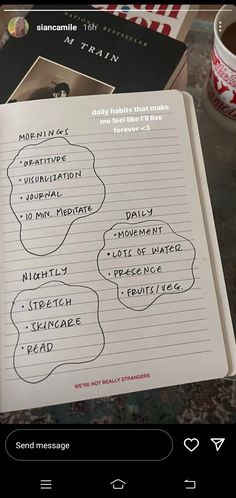 siancamile 16h
NATIONAL BESTSELLER
M TRAIN
daily habits that make
me feel like I'll live
forever <3
MORNINGS
• GRATITUDE
• VISUALIZATION
• JOURNAL
• 10 MIN. MEDITATE
DAILY
• MOVEMENT
• LOTS OF WATER
• PRESENCE
• FRUITS/VEG.
NIGHTLY
• STRETCH
• SKINCARE
• READ
WE'RE NOT REALLY STRANGERS
Send message